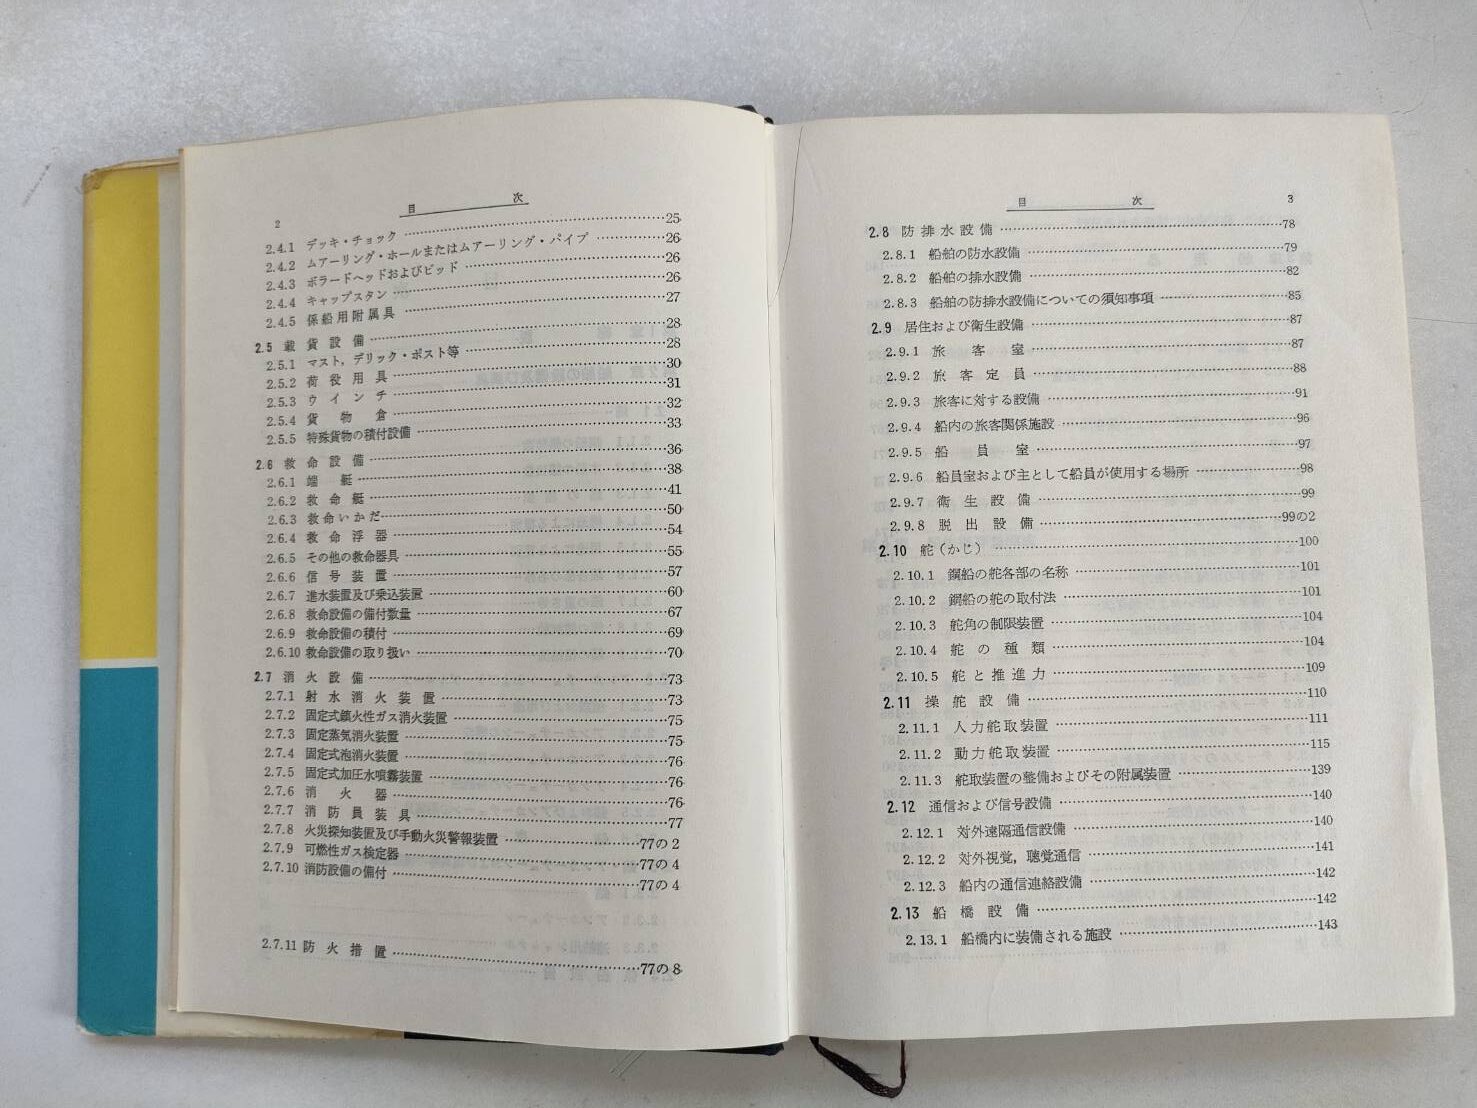 2
目 次
2.4.1 デッキ・チョック 25
2.4.2 ムアーリング・ホールまたはムアーリング・パイプ 26
2.4.3 ボラードヘッドおよびビッド 26
2.4.4 キャップスタン 26
2.4.5 係船用附属具 27
2.5 載貨設備 28
2.5.1 マスト，デリック・ポスト等 28
2.5.2 荷役用具 30
2.5.3 ウインチ 31
2.5.4 貨物倉 32
2.5.5 特殊貨物の積付設備 33
2.6 救命設備 36
2.6.1 端艇 38
2.6.2 救命艇 41
2.6.3 救命いかだ 50
2.6.4 救命浮器 54
2.6.5 その他の救命器具 55
2.6.6 信号装置 57
2.6.7 進水装置及び乗込装置 60
2.6.8 救命設備の備付数量 67
2.6.9 救命設備の積付 69
2.6.10 救命設備の取り扱い 70
2.7 消火設備 73
2.7.1 射水消火装置 73
2.7.2 固定式鎮火性ガス消火装置 75
2.7.3 固定蒸気消火装置 75
2.7.4 固定式泡消火装置 76
2.7.5 固定式加圧水噴霧装置 76
2.7.6 消火器 76
2.7.7 消防員装具 77
2.7.8 火災探知装置及び手動火災警報装置 77の2
2.7.9 可燃性ガス検定器 77の4
2.7.10 消防設備の備付 77の4
2.7.11 防火措置 77の8
目 次
3
2.8 防排水設備 78
2.8.1 船舶の防水設備 79
2.8.2 船舶の排水設備 82
2.8.3 船舶の防排水設備についての須知事項 85
2.9 居住および衛生設備 87
2.9.1 旅客室 87
2.9.2 旅客定員 88
2.9.3 旅客に対する設備 91
2.9.4 船内の旅客関係施設 96
2.9.5 船員室 97
2.9.6 船員室および主として船員が使用する場所 98
2.9.7 衛生設備 99
2.9.8 脱出設備 99の2
2.10 舵（かじ） 100
2.10.1 鋼船の舵各部の名称 101
2.10.2 鋼船の舵の取付法 101
2.10.3 舵角の制限装置 104
2.10.4 舵の種類 104
2.10.5 舵と推進力 109
2.11 操舵設備 110
2.11.1 人力舵取装置 111
2.11.2 動力舵取装置 115
2.11.3 舵取装置の整備およびその附属装置 139
2.12 通信および信号設備 140
2.12.1 対外遠隔通信設備 140
2.12.2 対外視覚，聴覚通信 141
2.12.3 船内の通信連絡設備 142
2.13 船橋設備 142
2.13.1 船橋内に装備される施設 143